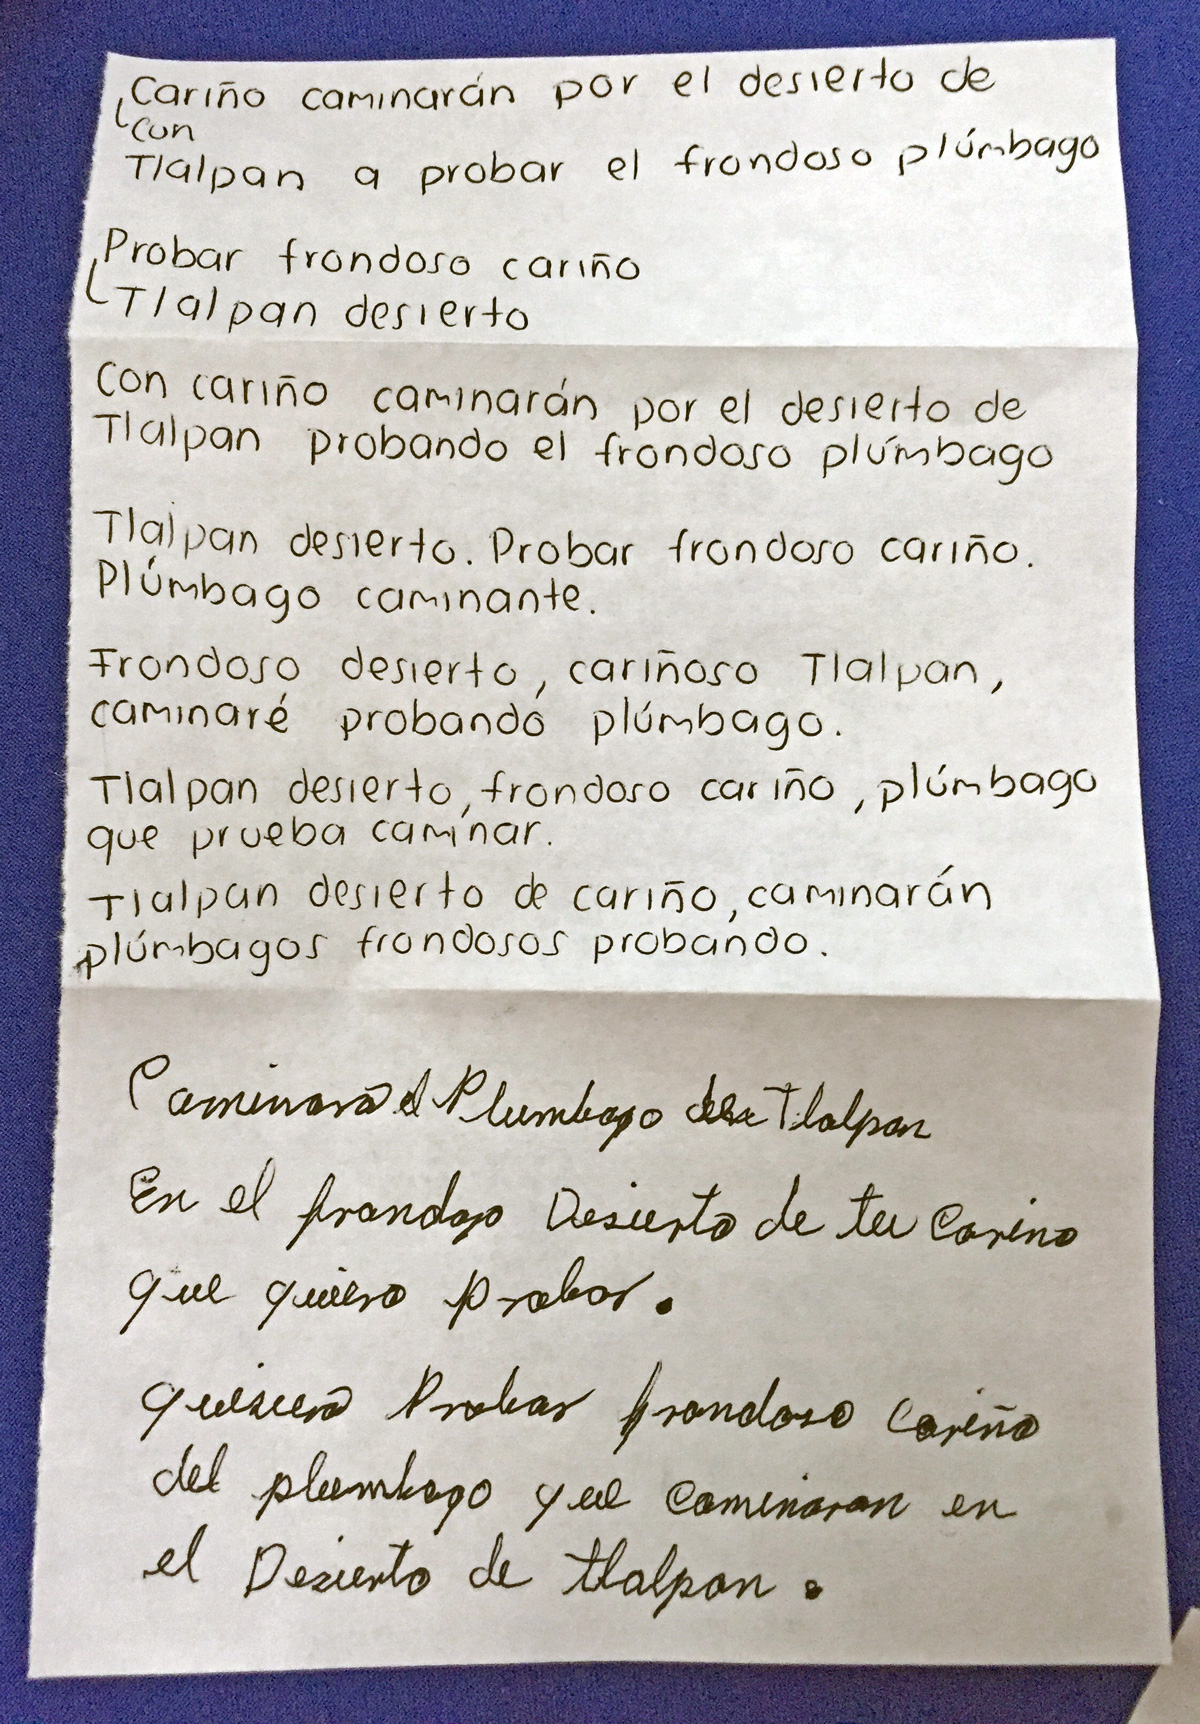 Cariño caminarán por el desierto de
Con
Tlalpan a probar el frondoso plúmbago
Probar frondoso cariño
Tlalpan desierto
Con cariño caminarán por el desierto de
Tlalpan probando el frondoso plúmbago
Tlalpan desierto. Probar frondoso cariño.
Plúmbago caminante.
Frondoso desierto, cariñoso Tlalpan,
caminaré probando plúmbago.
Tlalpan desierto, frondoso cariño, plúmbago
que prueba caminar.
Tlalpan desierto de cariño, caminarán
plúmbagos frondosos probando.
Caminará el Plumbago de Tlalpan
En el frondoso Desierto de tu Cariño
que quiero probar.
quisiera Probar frondoso Cariño
del plumbago que Caminaran en
el Desierto de tlalpan.